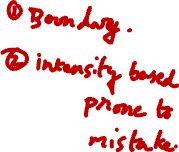 ① Boundary.
② intensity based
prone to
mistake.